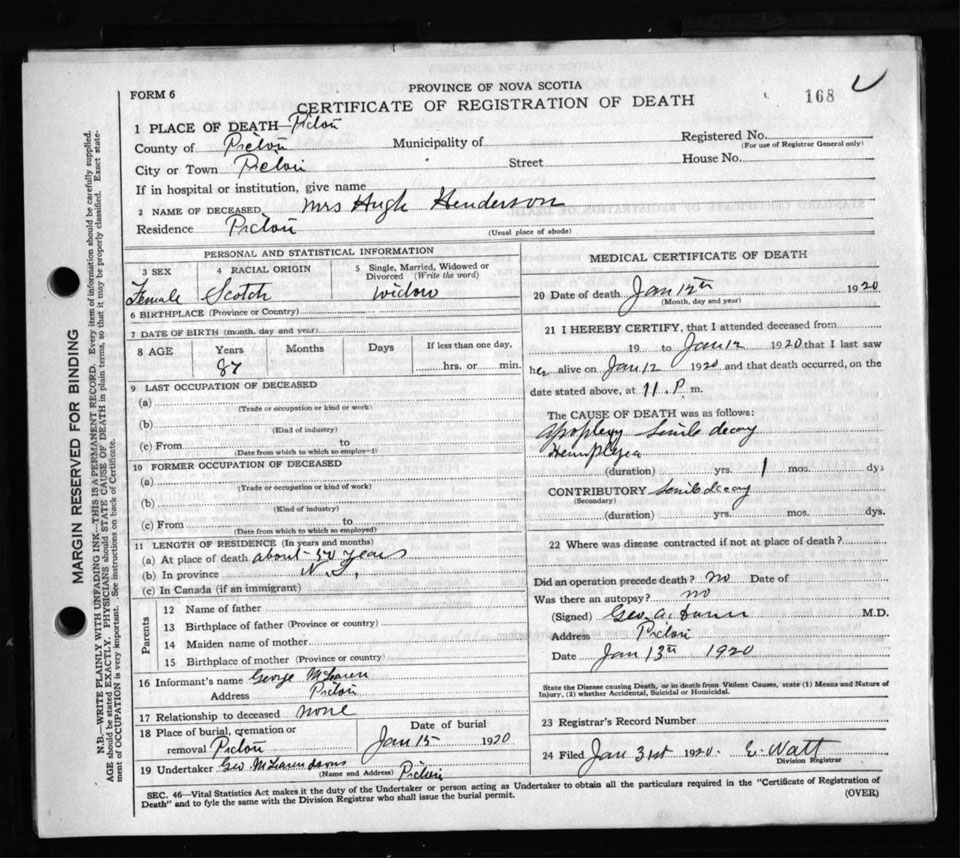 PROVINCE OF NOVA SCOTIA
FORM 6
CERTIFICATE OF REGISTRATION OF DEATH
168
1 PLACE OF DEATH—Pictou
County of Pictou Municipality of Registered No.
(For use of Registrar General only)
City or Town Pictou Street House No.
If in hospital or institution, give name
2 NAME OF DECEASED Mrs Hugh Henderson
Residence Pictou (Usual place of abode)
PERSONAL AND STATISTICAL INFORMATION
3 SEX 4 RACIAL ORIGIN 5 Single, Married, Widowed or Divorced (Write the word)
Female Scotch widow
6 BIRTHPLACE (Province or Country)
7 DATE OF BIRTH (month, day and year)
8 AGE Years Months Days If less than one day,
87 hrs. or min.
9 LAST OCCUPATION OF DECEASED
(a)
(Trade or occupation or kind or work)
(b)
(Kind of industry)
(c) From to
(Date from which to which so employed)
10 FORMER OCCUPATION OF DECEASED
(a)
(Trade or occupation or kind of work)
(b)
(Kind of industry)
(c) From to
(Date from which to which so employed)
11 LENGTH OF RESIDENCE (In years and months)
(a) At place of death about 50 years
(b) In province N.S.
(c) In Canada (if an immigrant)
Parents
12 Name of father
13 Birthplace of father (Province or country)
14 Maiden name of mother
15 Birthplace of mother (Province or country)
16 Informant's name George McLaren
Address Pictou
17 Relationship to deceased none
18 Place of burial, cremation or Date of burial
removal Pictou Jan 15 1920
19 Undertaker Geo McLaren &sons
(Name and Address) Pictou
MEDICAL CERTIFICATE OF DEATH
20 Date of death Jan 12th 1920
(Month, day and year)
21 I HEREBY CERTIFY, that I attended deceased from
19 to Jan 12 1920 that I last saw
her alive on Jan 12 1920 and that death occurred, on the
date stated above, at 11.P.m.
The CAUSE OF DEATH was as follows:
Apoplexy Senile decay
Hemiplegia
(duration) yrs. 1 mos. dys
CONTRIBUTORY Senile decay
(Secondary)
(duration) yrs. mos. dys.
22 Where was disease contracted if not at place of death?
Did an operation precede death? no Date of
Was there an autopsy? no
(Signed) Geo. A. M.D.
Address Pictou
Date Jan 13th 1920
State the Disease causing Death, or in death from Violent Causes, state (1) Means and Nature of
Injury, (2) whether Accidental, Suicidal or Homicidal.
23 Registrar's Record Number
24 Filed Jan 31st 1920. E. Watt
Division Registrar
SEC. 46—Vital Statistics Act makes it the duty of the Undertaker or person acting as Undertaker to obtain all the particulars required in the "Certificate of Registration of
Death" and to fyle the same with the Division Registrar who shall issue the burial permit. (OVER)
MARGIN RESERVED FOR BINDING
N.B.—WRITE PLAINLY WITH UNFADING INK—THIS IS A PERMANENT RECORD. Every item of information should be carefully supplied.
AGE should be stated EXACTLY. PHYSICIANS should STATE CAUSE OF DEATH in plain terms, so that it may be properly classified. Exact state-
ment of OCCUPATION is very important. See instructions on back of Certificate.